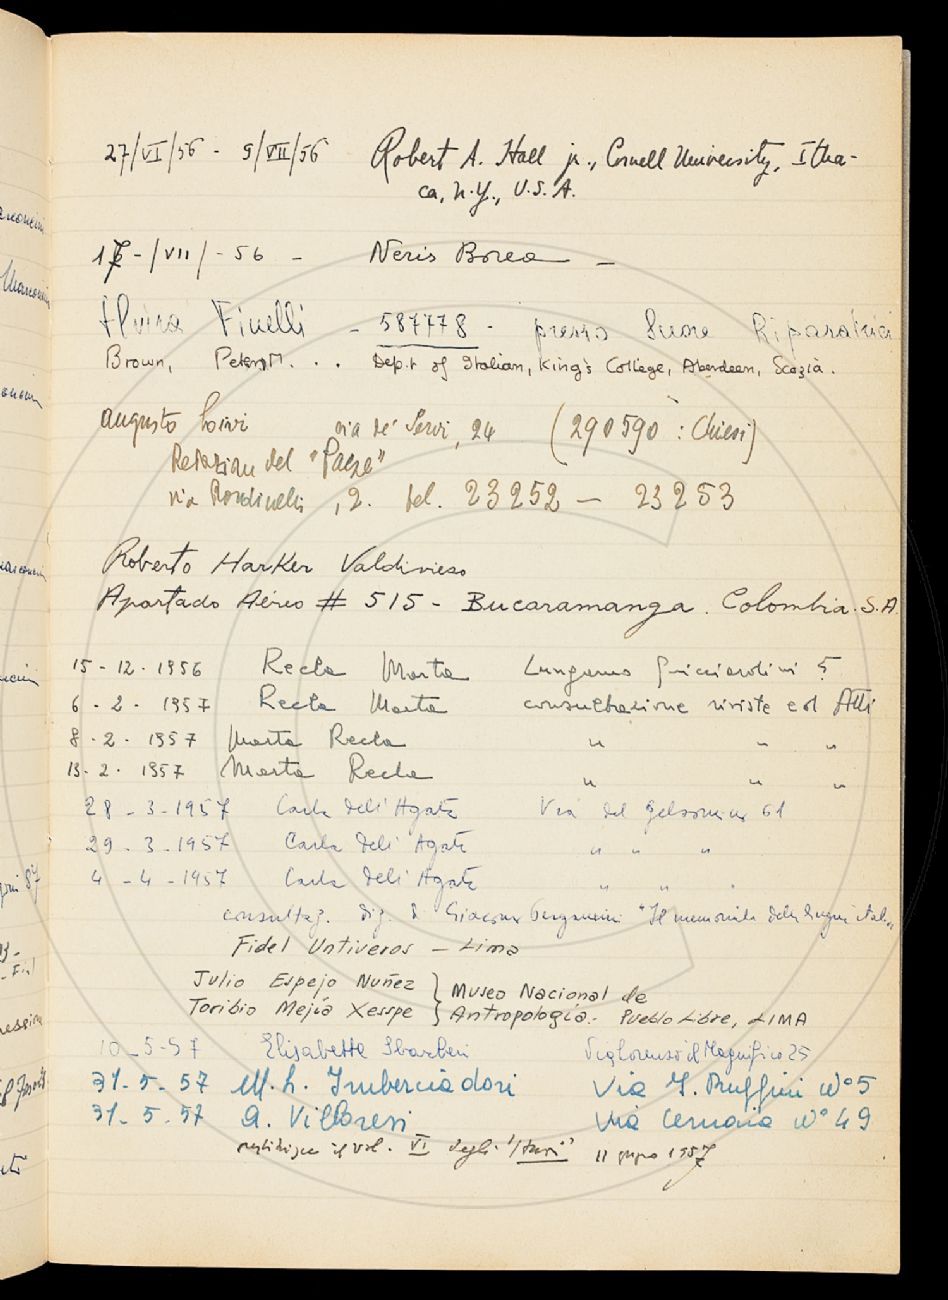 27/VI/56 - 9/VII/56 Robert A. Hall jr., Cornell University, Itha-
ca, N.Y., U.S.A.
/VII/-56 - Neris Borea -
Elvira Finelli - 587778 - presso Suore Riparatrici
Brown, Peter M. . . Dep.t of Italian, King's College, Aberdeen, Scozia.
Augusto Livi via de' Servi, 24 (290590: Chiesi)
Redazione del "Paese"
via Rondinelli, 2. tel. 23252 - 23253
Roberto Harker Valdivieso
Apartado Aéreo # 515 - Bucaramanga. Colombia. S.A.
15-12-1956 Recla Marta Lungarno Guicciardini 5
6-2-1957 Recla Marta consultazione riviste ed Atti
8-2-1957 Marta Recla " " "
13-2-1957 Marta Recla " " "
28-3-1957 Carla Dell'Agata Via del Gelsomino 61
29-3-1957 Carla Dell'Agata " " "
4-4-1957 Carla Dell'Agata " " "
consultaz. diz. di Giacomo Pergamini "Il memoriale della lingua ital."
Fidel Untiveros - Lima
Julio Espejo Nuñez } Museo Nacional de
Toribio Mejía Xesspe } Antropología - Pueblo Libre, LIMA
10-5-57 Elisabetta Via Lorenzo il Magnifico 25
31-5-57 M. L. Imberciadori Via J. Ruffini N° 5
31-5-57 A. Villoresi Via Cernaia N° 49
il vol. VI degli "Studi" 11 giugno 1957